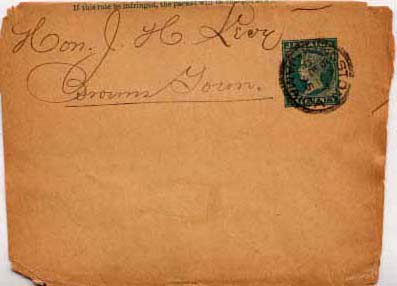 If this rule be infringed, the packet will be
Hon. J. H Levy
Browns Town.
JAMAICA